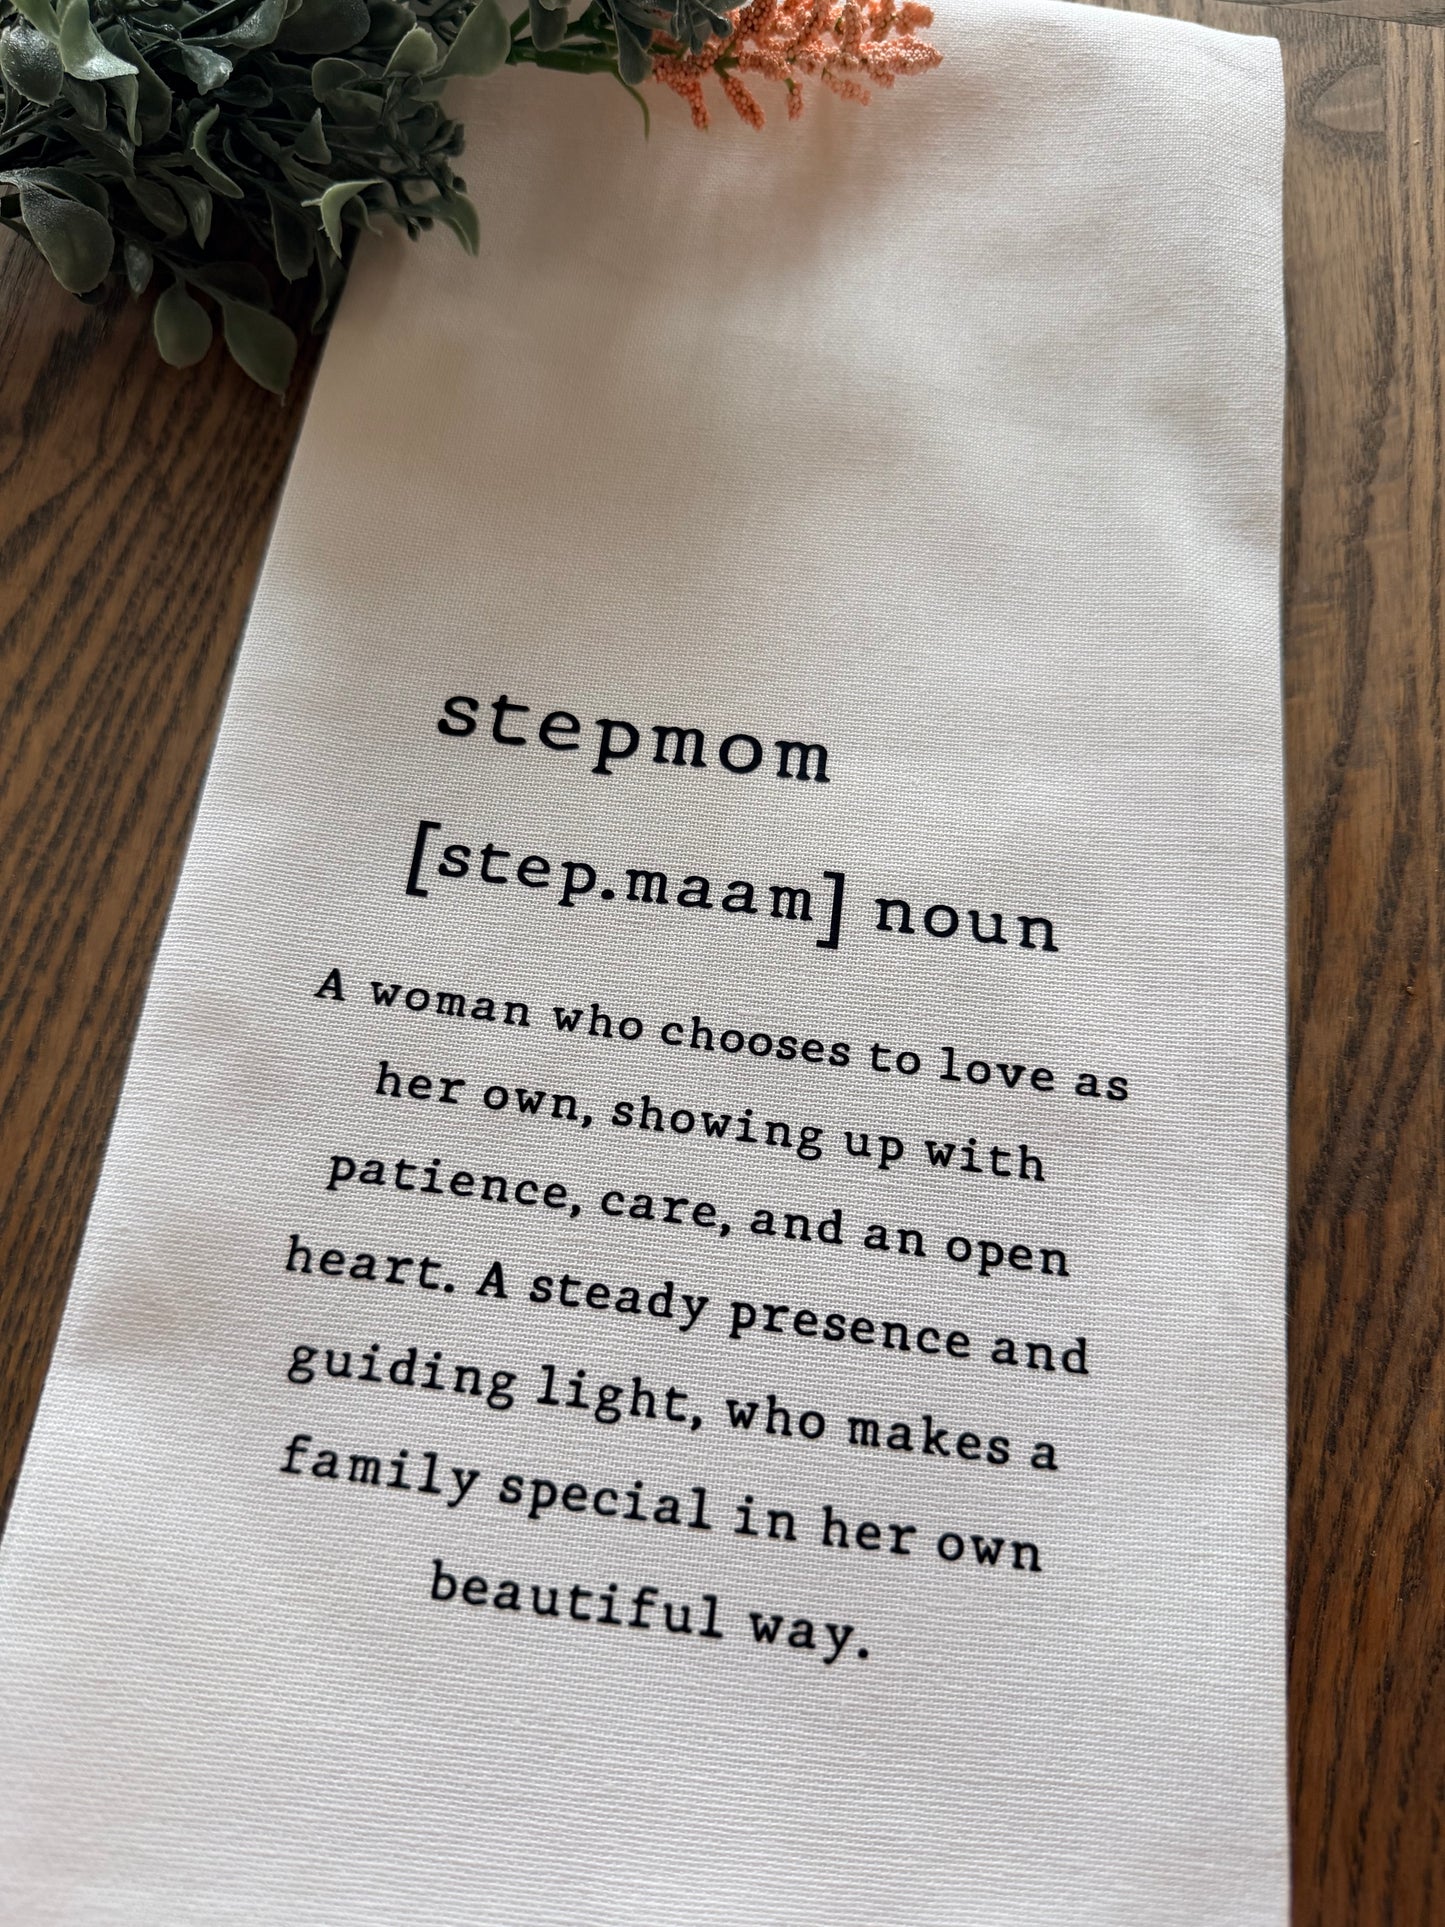 stepmom
[step.maam] noun
A woman who chooses to love as
her own, showing up with
patience, care, and an open
heart. A steady presence and
guiding light, who makes a
family special in her own
beautiful way.